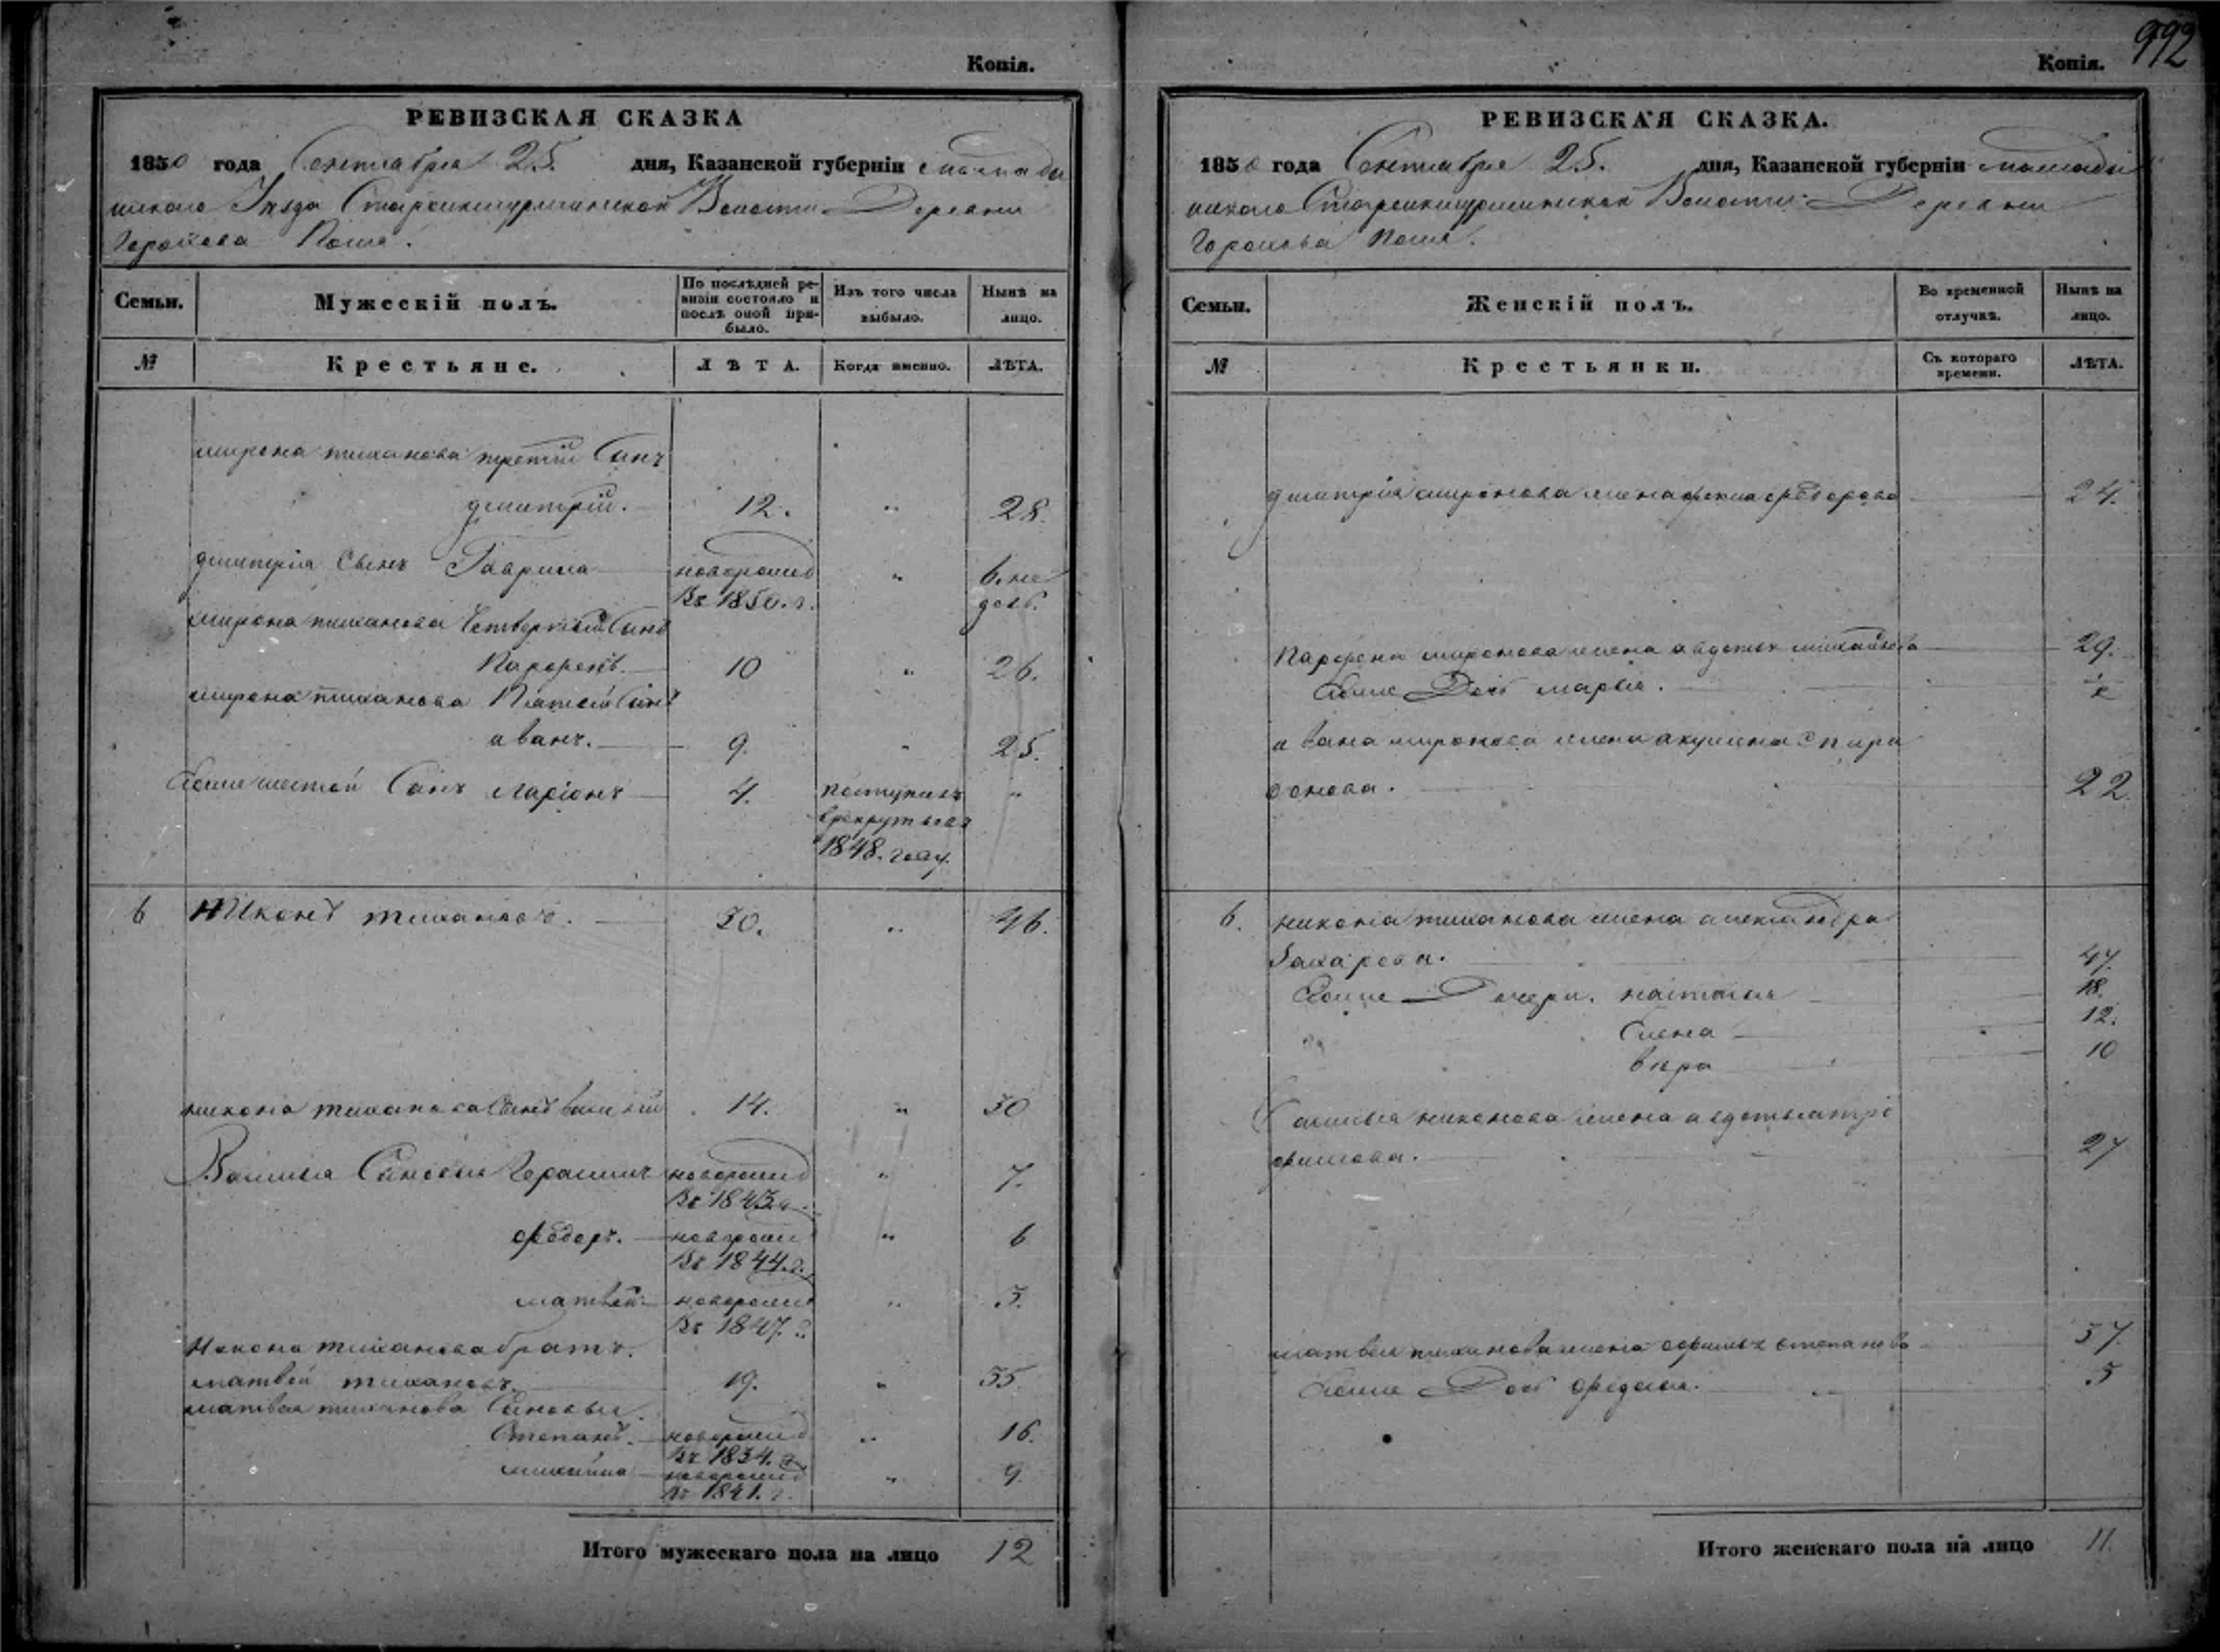 Копія.
РЕВИЗСКАЯ СКАЗКА
1850 года Сентября 25. дня, Казанской губерніи
Уѣзда Волости Деревни
Поля.
Семьи.
Мужескій полъ.
По послѣдней ре-
визіи состояло и
послѣ оной при-
было.
Изъ того числа
выбыло.
Нынѣ на
лицо.
№
Крестьяне.
ЛѢТА.
Когда именно.
ЛѢТА.
мирона тиханова третій Сынъ
дмитрій. 12. „ 28.
дмитрія Сынъ Гаврила новорожд „ 6. не
Въ 1850. г. дель.
мирона тиханова Четвертый Сынъ
Парфенъ. 10 „ 26.
мирона тиханова Пятый Сынъ
иванъ. 9. „ 25.
Ево же шестой Сынъ ларіонъ 4. поступилъ „
врекрутысва
1848. году.
6 Никонъ тихановъ. 30. „ 46.
никона тиханова Сынъ василій 14. „ 30
Василья Сыновья Герасимъ новорожд „ 7.
Въ 1843 г.
федоръ. новорожд „ 6
Въ 1844. г.
матвей новорожд „ 3.
Въ 1847. г.
Никона тиханова братъ.
матвей тихановъ 19. „ 35
матвея тиханова Сыновья
Степанъ. новорожд „ 16.
Въ 1834. г.
михайла новорожд „ 9.
въ 1841. г.
Итого мужескаго пола на лицо 12
992
Копія.
РЕВИЗСКАЯ СКАЗКА.
1850 года Сентября 25. дня, Казанской губерніи
Волости Деревни
Поля.
Семьи.
Женскій полъ.
Во временной
отлучкѣ.
Нынѣ на
лицо.
№
Крестьянки.
Съ котораго
времени.
ЛѢТА.
дмитрія миронова жена федорова 24.
Парфена миронова жена авдотья михайлова 29.
Ево же Дочь марья. ½
ивана миронова жена акулина спири
донова. 22.
6. никона тиханова жена александра
Захарова. 47.
Ево же Дочери. настасья 18.
Елена 12.
вѣра 10
Василья никонова жена авдотья тро
фимова. 27
матвея тиханова жена софья степанова 37.
Ево же Дочь федосья. 3
Итого женскаго пола на лицо 11.